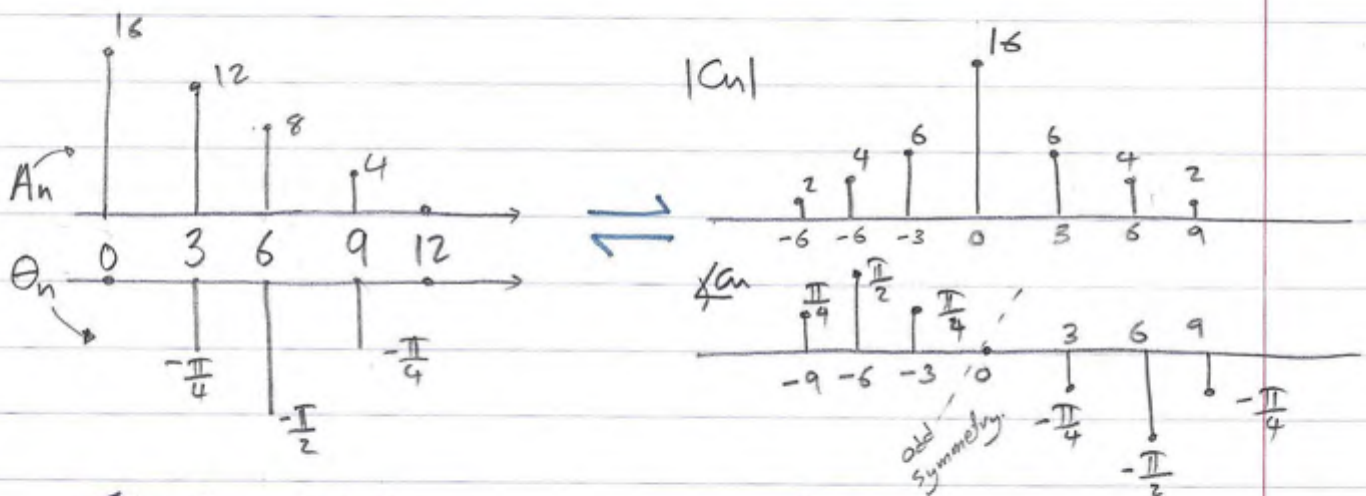 16
12
8
4
An
0 3 6 9 12
θn
-π/4
-π/2
-π/4
|Cn|
16
2 4 6 6 4 2
-6 -6 -3 0 3 6 9
∠Cn
π/4 π/2 π/4
-9 -6 -3 0 3 6 9
-π/4
-π/2
-π/4
odd
symmetry.